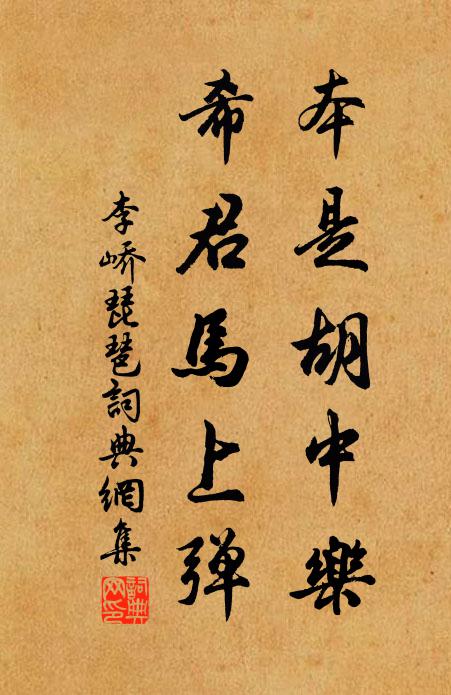 本是胡中樂
希君馬上弹
李嶠琵琶詞典網集
詞典
网印